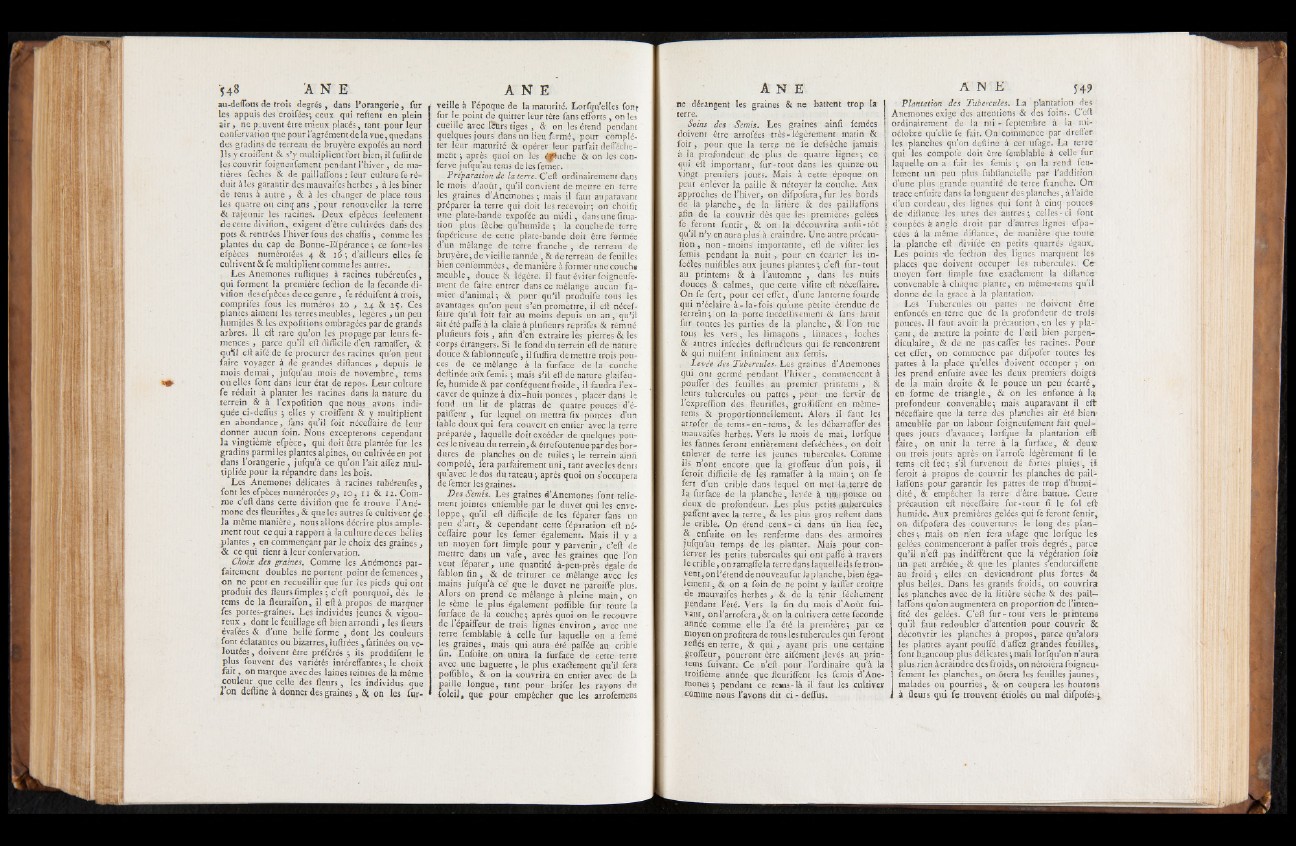 548 A N E
au-dessous de trois degrés, dans l'orangerie, sur
les appuis des croisées; ceux qui restent en plein
air, ne peuvent être mieux placés, tant pour leur
conservation que pour l'agrément de la vue, que dans
des gradins de terreau de bruyère exposés au nord
Ils y croissent & s'y multiplient fort bien, il suffit de
les couvrir soigneusement pendant l'hiver, de ma-
tières sèches & de paillassons: leur culture se ré-
duit à les garantir des mauvaises herbes, à les biner
de tems à autre, & à les changer de place tous
les quatre ou cinq ans, pour renouveller la terre
& rajeunir les racines. Deux espèces seulement
de cette division, exigent d'être cultivées dans des
pots & rentrées l'hiver sous des chassis, comme les
plantes du cap de Bonne-Espérance; ce sont-les
espèces numérotées 4 & 16; d'ailleurs elles se
cultivent & se multiplient comme les autres.
Les Anemones rustiques à racines tubéreuses,
qui forment la première section de la seconde di-
vision des espèces de ce genre, se réduisent à trois,
comprises sous les numéros 20, 24 & 25. Ces
plantes aiment les terres meubles, legères, un peu
humides & les expositions ombragées par de grands
arbres. Il est rare qu'on les propage par leurs se-
mences, parce qu'il est difficile d'en ramasser, &
qu'il est aisé de se procurer des racines qu'on peut
faire voyager à de grandes distances, depuis le
mois de mai, jusqu'au mois de novembre, tems
où elles sont dans leur état de repos. Leur culture
se réduit à planter les racines dans la nature du
terrein & à l'exposition que nous avons indi-
quée ci-dessus; elles y croissent & y multiplient
en abondance, sans qu'il soit nécessaire de leur
donner aucun soin. Nous excepterons cependant
la vingtième espèce, qui doit être plantée sur les
gradins parmi les plantes alpines, ou cultivée en pot
dans l'orangerie, jusqu'à ce qu'on l'ait assez mul-
tipliée pour la répandre dans les bois.
Les Anemones délicates à racines tubéreuses,
sont les espèces numérotées 9, 10, 11 & 12. Com-
me c'est dans cette division que se trouve l'Ané-
mone des fleuristes, & que les autres se cultivent de
la même manière, nous allons décrire plus ample-
ment tout ce qui a rapport à la culture de ces belles
plantes, en commençant par le choix des graines,
& ce qui tient à leur conservation.
Choix des graines. Comme les Anémones par-
faitement doubles ne portent point de semences,
on ne peut en recueillir que sur les pieds qui ont
produit des fleurs simples; c'est pourquoi, dès le
tems de la fleuraison, il est à propos de marquer
ses portes-graines. Les individus jeunes & vigou-
reux, dont le feuillage est bien arrondi, les fleurs
évasées & d'une belle forme, dont les couleurs
sont éclatantes ou bizarres, lustrées, satinées ou ve-
loutées, doivent être préférés; ils produisent le
plus souvent des variétés intéressantes; le choix
fait, on marque avec des laines teintes de la même
couleur que celle des fleurs, les individus que
l'on destine à donner des graines, & on les sur-
A N E
veille à l'époque de la maturité. Lorsqu'elles sont
sur le point de quitter leur tête sans efforts, on les
cueille avec leurs tiges, & on les étend pendant
quelques jours dans un lieu fermé, pour complé-
ter leur maturité & opérer leur parfait desséche-
ment; après quoi on les & on les con-
serve jusqu'au tems de les semer.
Préparation de la terre. C'est ordinairement dans
le mois d'août, qu'il convient de mettre en terre
les graines d'Anemones; mais il faut auparavant
préparer la terre qui doit les recevoir; on choisit
une plate-bande exposée au midi, dans une situa-
tion plus sèche qu'humide; la couche de terre
supérieure de cette plate-bande doit être formée
d'un mélange de terre franche, de terreau de
bruyère, de vieille tannée, & de terreau de feuilles
bien consommées, de manière à former une couche
meuble, douce & légère. Il faut éviter soigneuse-
ment de faire entrer dans ce mélange aucun fu-
mier d'animal; & pour qu'il produise tous les
avantages qu'on peut s'en promettre, il est néces-
saire qu'il soit fait au moins depuis un an, qu'il
ait été passé à la claie à plusieurs reprises & remué
plusieurs fois, afin d'en extraire les pierres & les
corps étrangers. Si le fond du terrein est de nature
douce & sablonneuse, il suffira de mettre trois pou-
ces de ce mélange à la surface de la couche
destinée aux semis; mais s'il est de nature glaiseu-
se, humide & par conséquent froide, il faudra l'ex-
caver de quinze à dix-huit pouces, placer dans le
fond un lit de platras de quatre pouces d'é-
paisseur, sur lequel on mettra six pouces d'un
sable doux qui sera couvert en entier avec la terre
préparée, laquelle doit excéder de quelques pou-
ces le niveau du terrein, & être soutenue par des bor-
dures de planches ou de tuiles; le terrein ainsi
composé, sera parfaitement uni, tant avec les dents
qu'avec le dos du rateau; après quoi on s'occupera
de semer les graines.
Des Semis. Les graines d'Anemones sont telle-
ment jointes ensemble par le duvet qui les enve-
loppe, qu'il est difficile de les séparer sans un
peu d'art, & cependant cette séparation est né-
cessaire pour les semer également. Mais il y a
un moyen fort simple pour y parvenir, c'est de
mettre dans un vase, avec les graines que l'on
veut séparer, une quantité à-peu-près égale de
sablon fin, & de triturer ce mélange avec les
mains jusqu'à ce que le duvet ne paroisse plus.
Alors on prend ce mélange à pleine main, on
le sème le plus également possible sur toute la
surface de la couche; après quoi on le recouvre
de l'épaisseur de trois lignes environ, avec une
terre semblable à celle sur laquelle on a semé
les graines, mais qui aura été passée au crible
fin. Ensuite on unira la surface de cette terre
avec une baguette, le plus exactement qu'il sera
possible, & on la couvrira en entier avec de la
paille longue, tant pour briser les rayons du
soleil, que pour empêcher que les arrosemens
A N E
ne dérangent les graines & ne battent trop la
terre.
Soins des Semis. Les graines ainsi semées
doivent être arrosées très-légèrement matin &
soir, pour que la terre ne se desséche jamais
à la profondeur de plus de quatre lignes; ce
qui est important, sur-tout dans les quinze ou
vingt premiers jours. Mais à cette époque on
peut enlever la paille & nétoyer la couche. Aux
approches de l'hiver, on disposera, sur les bords
de la planche, de la litière & des paillassons
afin de la couvrir dès que les premières gelées
se feront sentir, & on la découvrira aussi-tôt
qu'il n'y en aura plus à craindre. Une autre précau-
tion, non-moins importante, est de visiter les
semis pendant la nuit, pour en écarter les in-
sectes nuisibles aux jeunes plantes; c'est sur-tout
au printems & à l'automne, dans les nuits
douces & calmes, que cette visite est nécessaire.
On se sert, pour cet effet, d'une lanterne sourde
qui n'éclaire à-la-fois qu'une petite étendue de
terrein; on la porte successivement & sans bruit
sur toutes les parties de la planche, & l'on me
tous les vers, les limaçons, limaces, loches
& autres insectes destructeurs qui se rencontrent
& qui nuisent infiniment aux semis.
Levée des Tubercules. Les graines d'Anemones
qui ont germé pendant l'hiver, commencent à
pousser des feuilles au premier printems, &
leurs tubercules ou pattes, pour me servir de
l'expression des fleuristes, grossissent en même-
tems & proportionnellement. Alors il faut les
arroser de tems-en-tems, & les débarrasser des
mauvaises herbes. Vers le mois de mai, lorsque
les fannes seront entièrement desséchées, on doit
enlever de terre les jeunes tubercules. Comme
ils n'ont encore que la grosseur d'un pois, il
seroit difficile de les ramasser à la main; on se
sert d'un crible dans lequel on met la terre de
la surface de la planche, levée à un pouce ou
deux de profondeur. Les plus petits tubercules
passent avec la terre, & les plus gros restent dans
le crible. On étend ceux-ci dans un lieu sec,
& ensuite on les renferme dans des armoires
jusqu'au temps de les planter. Mais pour con-
server les petits tubercules qui ont passé à travers
le crible, on ramasse la terre dans laquelle ils se trou-
vent, on l'étend de nouveau sur la planche, bien éga-
lement, & on a soin de ne point y laisser croître
de mauvaises herbes, & de la tenir séchement
pendant l'été. Vers la fin du mois d'Août sui-
vant, on l'arrosera, & on la cultivera cette seconde
année comme elle l'a été la première; par ce
moyen on profitera de tous les tubercules qui seront
restés en terre, & qui, ayant pris une certaine
grosseur, pourront être aisément levés au prin-
tems suivant. Ce n'est pour l'ordinaire qu'à la
troisième année que fleurissent les semis d'Ane-
mones; pendant ce tems-là il faut les cultiver
comme nous l'avons dit ci-dessus.
A N E 549
Plantation des Tubercules. La plantation des
Anemones exige des attentions & des soins. C'est
ordinairement de la mi-septembre à la mi-
octobre qu'elle se fait. On commence par dresser
les planches qu'on destine à cet usage. La terre
qui les compose doit être semblable à celle sur
laquelle on a fait les semis; on la rend seu-
lement un peu plus substancielle par l'addition
d'une plus grande quantité de terre franche. On
trace ensuite dans la longueur des planches, à l'aide
d'un cordeau, des lignes qui sont à cinq pouces
de distance les unes des autres; celles-ci sont
coupées à angle droit par d'autres lignes espa-
cées à la même distance, de manière que toute
la planche est divisée en petits quarrés égaux.
Les points de section des lignes marquent les
places que doivent occuper les tubercules. Ce
moyen fort simple fixe exactement la distance
convenable à chaque plante, en même-tems qu'il
donne de la grace à la plantation.
Les Tubercules ou pattes ne doivent être
enfoncés en terre que de la profondeur de trois
pouces. Il faut avoir la précaution, en les y pla-
çant, de mettre la pointe de l'œil bien perpen-
diculaire, & de ne pas casser les racines. Pour
cet effet, on commence par disposer toutes les
pattes à la place qu'elles doivent occuper; on
les prend ensuite avec les deux premiers doigts
de la main droite & le pouce un peu écarté,
en forme de triangle, & on les enfonce à la
profondeur convenable; mais auparavant il est
nécessaire que la terre des planches ait été bien
ameublie par un labour soigneusement fait quel-
ques jours d'avance; lorsque la plantation est
faite, on unit la terre à la surface, & deux
ou trois jours après on l'arrose légérement si le
tems est sec; s'il survenoit de fortes pluies, il
seroit à propos de couvrir les planches de pail-
lassons pour garantir les pattes de trop d'humi-
dité, & empêcher la terre d'être battue. Cette
précaution est nécessaire sur-tout si le sol est
humide. Aux premières gelées qui se feront sentir,
on disposera des couvertures le long des plan-
ches; mais on n'en fera usage que lorsque les
gelées commenceront à passer trois degrés, parce
qu'il n'est pas indifférent que la végétation soit
un peu arrêtée, & que les plantes s'endurcissent
au froid; elles en deviendront plus fortes &
plus belles. Dans les grands froids, on couvrira
les planches avec de la litière sèche & des pail-
lassons qu'on augmentera en proportion de l'inten-
sité des gelées. C'est sur-tout vers le printems
qu'il faut redoubler d'attention pour couvrir &
découvrir les planches à propos, parce qu'alors
les plantes ayant poussé d'assez grandes feuilles,
sont beaucoup plus délicates; mais lorsqu'on n'aura
plus rien à craindre des froids, on nétoiera soigneu-
sement les planches, on ôtera les feuilles jaunes,
malades ou pourries, & on coupera les boutons
à fleurs qui se trouvent étiolés ou mal disposés;